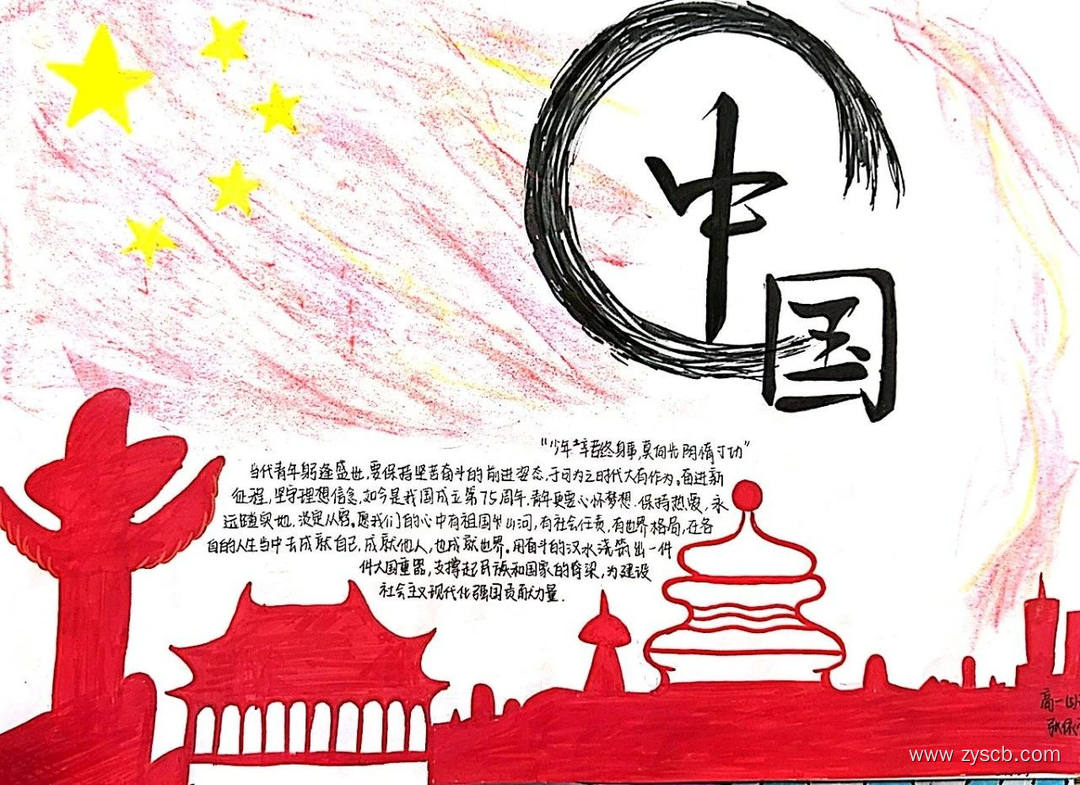 中
国
"少年辛苦终身事,莫向光阴惰寸功"
当代青年躬逢盛世,要保持坚苦奋斗的前进姿态,于可为之时代大有作为,奋进新
征程,坚守理想信念,如今是我国成立第75周年,青年更要心怀梦想,保持热爱,永
远踏实地,淡定从容。愿我们的心中有祖国的山河,有社会任责,有世界格局,在各
自的人生当中去成就自己,成就他人,也成就世界。用奋斗的汉水浇筑出一件
件大国重器,支撑起民族和国家的脊梁,为建设
社会主义现代化强国贡献力量.
高一
张
www.zyscb.com